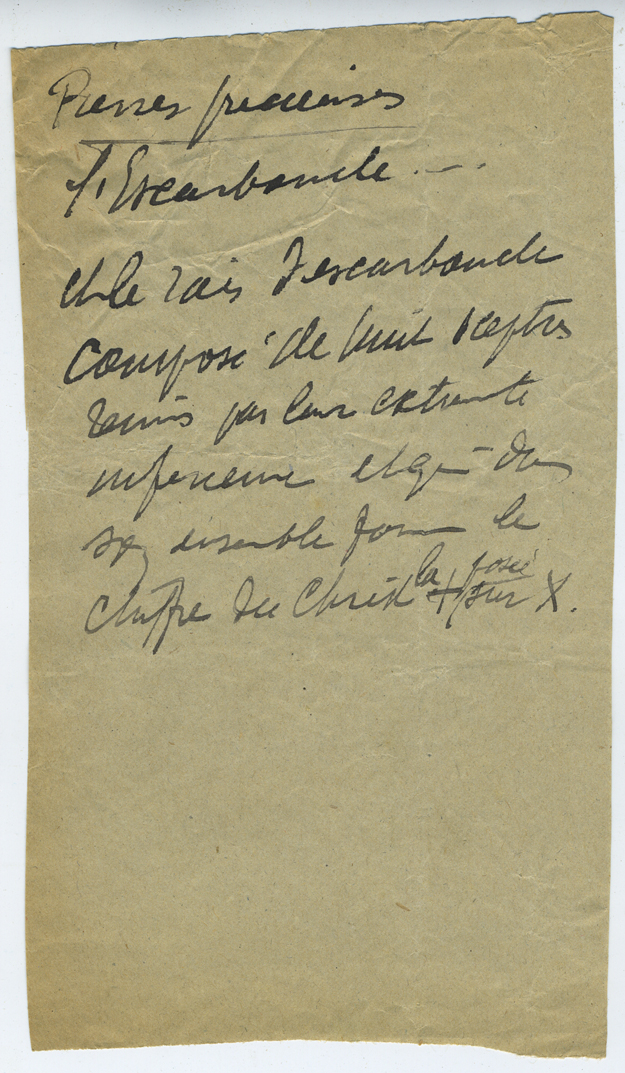 Pierres précieuses
l'Escarboucle . — .
et le rais d'escarboucle
composé de huit sceptres
réunis par leur extrémité
inférieure et qui dans
son ensemble forme le
chiffre du Christ la + posée sur X.